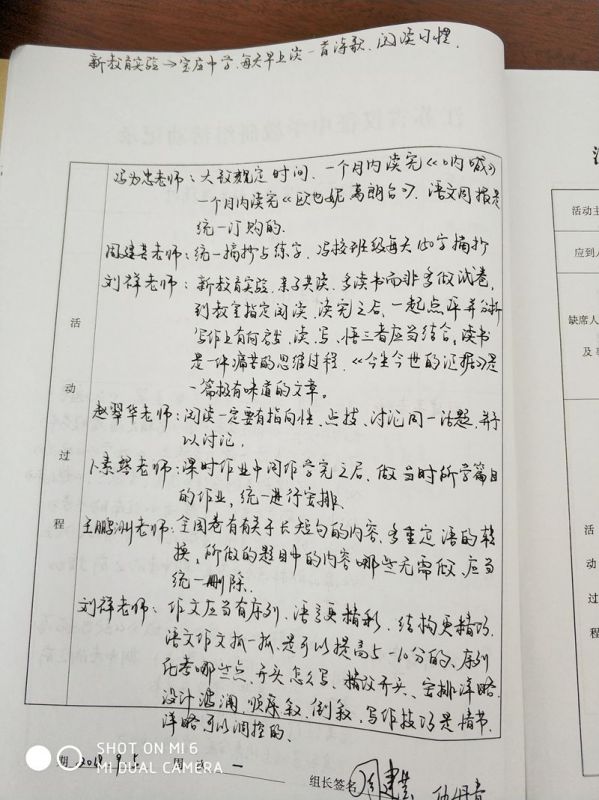 新教育实验→宝应中学，每天早上读一首诗歌、阅读习惯。
活动过程
冯为忠老师：大致规定时间，一个月内读完《呐喊》
一个月内读完《欧也妮葛朗台》，语文周报是
统一订购的。
周建老师：统一摘抄与练字，冯校班级每天150字摘抄
刘祥老师：新教育实验，亲子共读，多读书而非多做试卷，
到教室指定阅读，读完之后，一起点评并分析
写作上有何启发，读、写、悟三者应当结合，读书
是一件痛苦的思维过程，《今生今世的证据》是
一篇极有味道的文章。
赵翠华老师：阅读一定要有指向性、点拨、讨论同一话题，并予
以讨论。
卜素琴老师：课时作业中间作学完之后、做当时所学篇目
的作业，统一进行安排。
王鹏洲老师：全国卷有有关于长短句的内容，多重定语的转
换，所做的题目中的内容哪些无需做，应当
统一删除。
刘祥老师：作文应当有序列，语言更精彩，结构更精巧，
语文作文抓一抓，是可以提高5-10分的，序列
化考哪些点，开头怎么写，精致开头、安排详略
设计波澜，顺序叙、倒叙，写作技巧是情节、
详略可以调控的。
期 2018 9 5 周次 一
组长签名 周建
SHOT ON MI 6
MI DUAL CAMERA
活动主
应到人
缺席人
及事
活
动
过
程